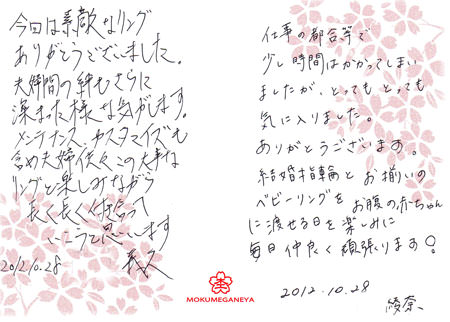 今回は素敵なリング
ありがとうございました。
夫婦間の絆もさらに
深まった様な気がします。
メンテナンス、カスタマイズも
含め夫婦供々この大事な
リングと楽しみながら
長く長く付き合って
いこうと思います
2012.10.28
仕事の都合等で
少し時間はかかってしまい
ましたが、とっても とっても
気に入りました。
ありがとうございます。
結婚指輪と お揃いの
ベビーリングを お腹の赤ちゃん
に渡せる日を楽しみに
毎日仲良く頑張ります♡!
2012.10.28
綾奈
MOKUMEGANEYA